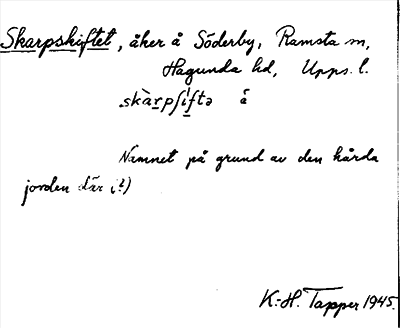 Skarpskiftet, åker å Söderby, Ramsta sn,
Hagunda hd, Upps. l.
skàrpʃiftə å
Namnet på grund av den hårda
jorden där (?)
K.-H. Tapper 1945.